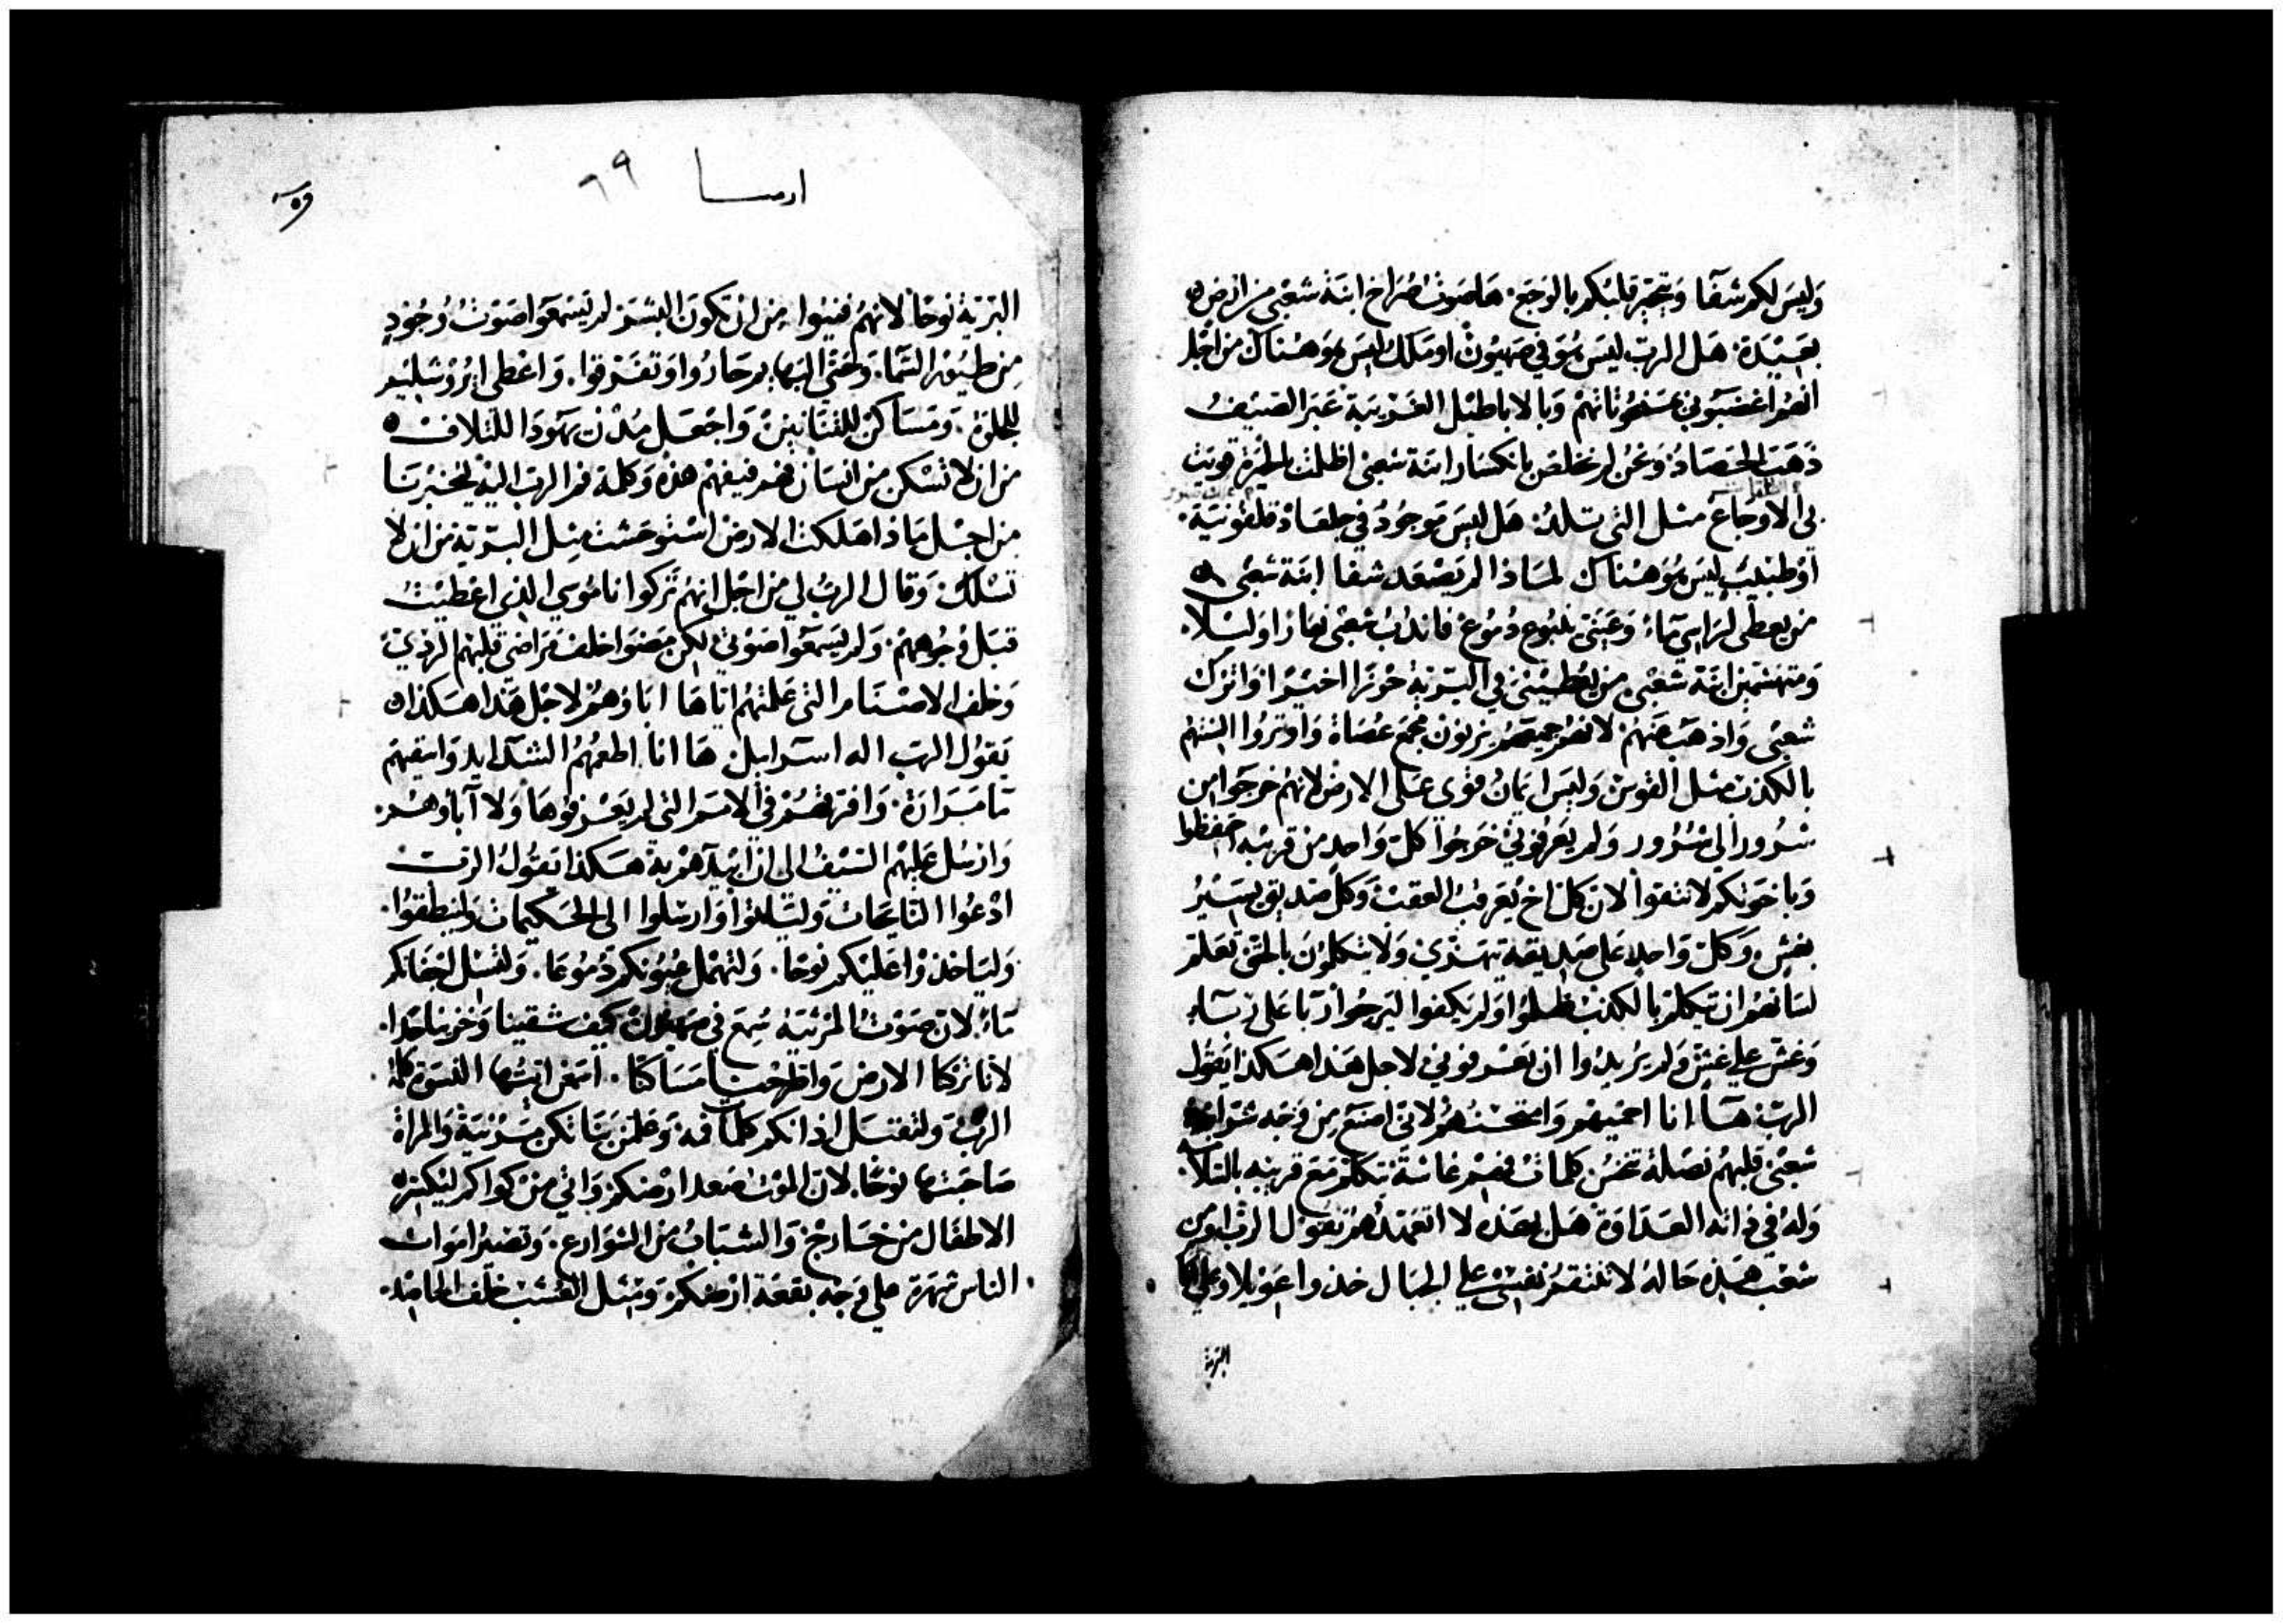 وليس لكم شفا ويتحير قلبكم بالوجع. ها صوت صراخ ابنة شعبي من ارض
بعيدة. هل الرب ليس هو في صهيون او ملك ليس هو هناك من اجل
انهم اغضبوني بمنحوتاتهم وبالاباطيل الغريبة عبر الصيف
ذهب الحصاد ونحن لم نخلص بانكسار ابنة شعبي اظلمت بالحيرة قويت
بي الاوجاع مثل التي تلد. هل ليس موجود في جلعاد قلفونية.
او طبيب ليس هو هناك لماذا لم يصعد شفا ابنة شعبي
من يعطي لراسي ماء وعيني ينبوع دموع فاندب شعبي نهارا وليلا.
ومتهشمين ابنة شعبي من يعطيني في البرية حوزا اخيرا واترك
شعبي واذهب عنهم لانهم جميعهم يزنون مجمع عصاة واوتروا السنتهم
بالكذب مثل القوس وليس ايمان قوي على الارض لانهم خرجوا من
شرور الى شرور ولم يعرفوني خرجوا كل واحد من قريبه احفظوا
وباخوتكم لا تثقوا لان كل اخ يعرقب العقب وكل صديق يسير
بغش وكل واحد على صديقه يهتدي ولا يتكلمون بالحق تعلم
لسانهم ان يتكلم بالكذب ظلموا ولم يكفوا ليرجوا ربا على ربا
وغش علي غش ولم يريدوا ان يعرفوني لاجل هذا هكذا يقول
الرب ها انا احميهم وامتحنهم لاني اصنع من وجه شر ابنة
شعبي قلبهم نصلة تخس كلمات فمهم غاشة تتكلم مع قريبه بالسلامة.
وله في ذاته العداوة هل بهذه لا اتعهدهم يقول الرب او من
شعب هذه حاله لا تنتقم نفسي علي الجبال خذوا عويلا وعلي
البرية
ارميا ٦٩
البرية نوحا لانهم فنيوا من ان تكون البشر لم يسمعوا صوت وجود
من طيور السما. وحتى البهايم حاروا وتفرقوا. واعطي ايروشليم
للجلاة. ومساكن للتنانين واجعل مدن يهودا للتلاف
من ان لا تسكن من انسان فهم فيفهم هذه وكلمة فم الرب اليه يخبرنا
من اجل ماذا هلكت الارض استوحشت مثل البرية من ان لا
تسلك وقال الرب لي من اجل انهم تركوا ناموسي الذي اعطيت
قبل وجوههم. ولم يسمعوا صوتي لكن مضوا خلف مراضي قلبهم الردي
وخلف الاصنام التي علمتهم اياها اباوهم لاجل هذا هكذا
يقول الرب اله اسراييل ها انا اطعمهم الشدايد واسقيهم
ما مرارة. وافرقهم في الامم التي لم يعرفوها ولا آباوهم.
وارسل عليهم السيف الى ان ابيدهم به هكذا يقول الرب
ادعوا النايحات ولتاتوا وارسلوا الى الحكيمات ولينطقوا.
ولياخذوا عليكم نوحا. ولتهمل عيونكم دموعا. ولتسل اجفانكم
ماء لان صوت المرثية سمع في صهيون كيف شقينا وخزينا جدا.
لاننا تركنا الارض واطرحنا مساكننا. اسمعن ايتها النسوة كلمة
الرب ولتقتبل اذانكم كلمات فمه وعلمن بناتكن مرثية والمراة
صاحبتها نوحا. لان الموت صعد ارضكم واتي من كواكم ليكسر
الاطفال من خارج والشباب من الشوارع. وتصير اموات
الناس شهرة علي وجه بقعة ارضكم ومثل العشب خلف الحاصد.